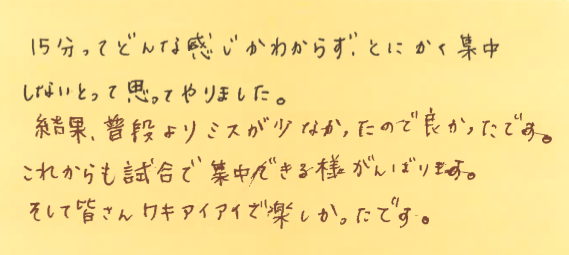 15分ってどんな感じかわからず、とにかく集中
しないとって思ってやりました。
結果、普段よりミスが少なかったので良かったです。
これからも試合で集中できる様がんばります。
そして皆さんワキアイアイで楽しかったです。